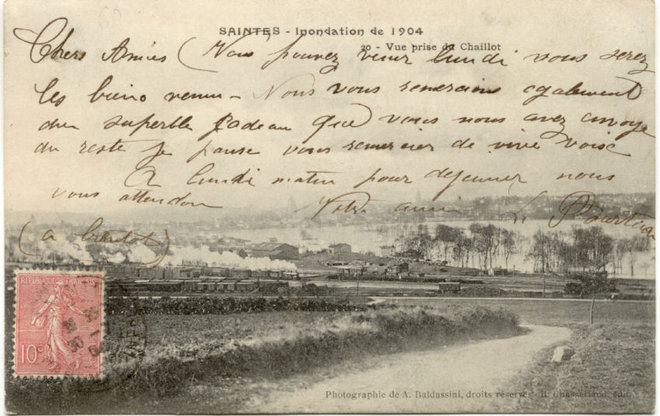 SAINTES - Inondation de 1904
20 - Vue prise du Chaillot
Chers Amies (Vous pouvez venir lundi vous serez
les bien venu - Nous vous remercions egalement
du superbe Cadeau que vous nous avez envoye
du reste je pense vous remercier de vive voix
A lundi matin pour dejeuner nous
vous attendon
Votre amie
(a bientot)
REPUBLIQUE FRANÇAISE
10c
Photographie de A. Baldassini, droits réservés - H. Chasseriaud, édit.